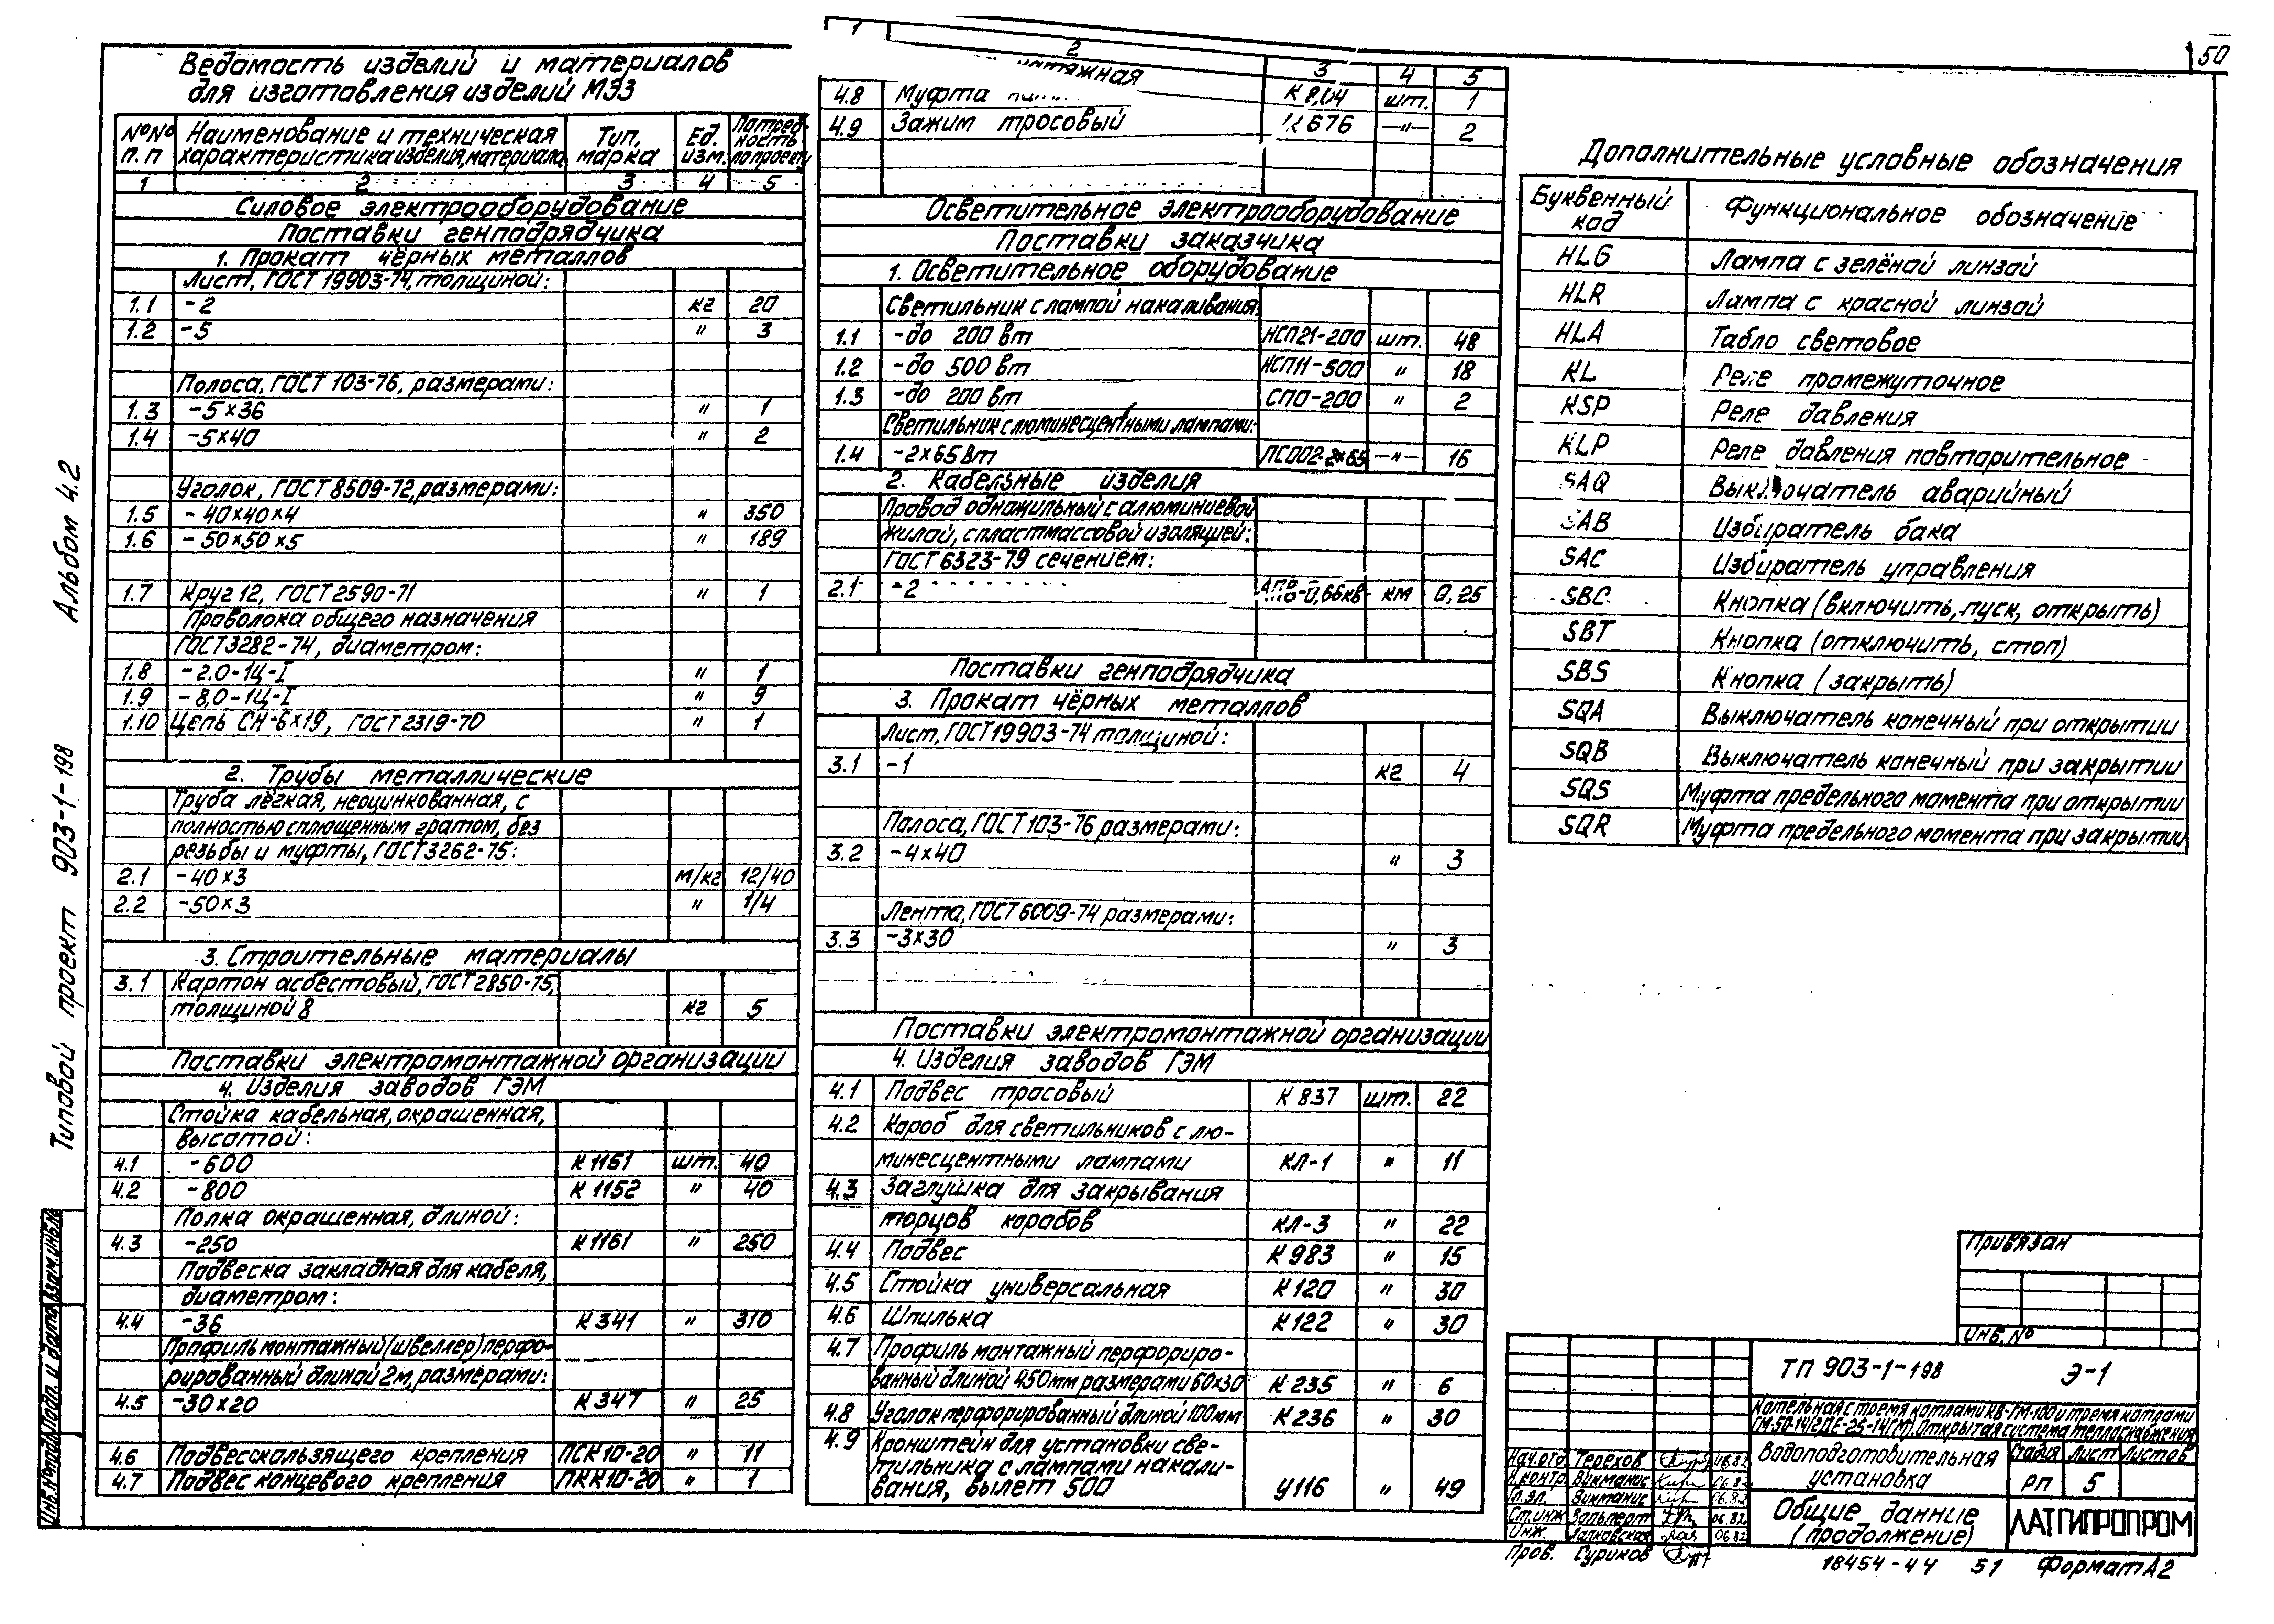 50
Ведомость изделий и материалов
для изготовления изделий МЭЗ
№№ п.п | Наименование и техническая характеристика изделия, материала | Тип, марка | Ед. изм. | Потреб-ность по проекту
1 2 3 4 5
Силовое электрооборудование
Поставки генподрядчика
1. Прокат чёрных металлов
Лист, ГОСТ 19903-74, толщиной:
1.1 -2 кг 20
1.2 -5 " 3
Полоса, ГОСТ 103-76, размерами:
1.3 -5×36 " 1
1.4 -5×40 " 2
Уголок, ГОСТ 8509-72, размерами:
1.5 -40×40×4 " 350
1.6 -50×50×5 " 189
1.7 Круг 12, ГОСТ 2590-71 " 1
Проволока общего назначения
ГОСТ 3282-74, диаметром:
1.8 -2.0-1Ц-I " 1
1.9 -8,0-1Ц-I " 9
1.10 Цепь СН-6×19, ГОСТ 2319-70 " 1
2. Трубы металлические
Труба лёгкая, неоцинкованная, с
полностью сплющенным гратом, без
резьбы и муфты, ГОСТ 3262-75:
2.1 -40×3 м/кг 12/40
2.2 -50×3 " 1/4
3. Строительные материалы
3.1 Картон асбестовый, ГОСТ 2850-75,
толщиной 8 кг 5
Поставки электромонтажной организации
4. Изделия заводов ГЭМ
Стойка кабельная, окрашенная,
высотой:
4.1 -600 К1151 шт. 40
4.2 -800 К1152 " 40
Полка окрашенная, длиной:
4.3 -250 К1161 " 250
Подвеска закладная для кабеля,
диаметром:
4.4 -36 К341 " 310
Профиль монтажный (швеллер) перфо-
рированный длиной 2м, размерами:
4.5 -30×20 К347 " 25
4.6 Подвес скользящего крепления ПСК10-20 " 11
4.7 Подвес концевого крепления ПКК10-20 " 1
1 2 3 4 5
4.8 Муфта натяжная К 804 шт. 1
4.9 Зажим тросовый К676 —"— 2
Осветительное электрооборудование
Поставки заказчика
1. Осветительное оборудование
Светильник с лампой накаливания:
1.1 -до 200 вт НСП21-200 шт. 48
1.2 -до 500 вт НСП11-500 " 18
1.3 -до 200 вт СПО-200 " 2
Светильник с люминесцентными лампами:
1.4 -2×65 вт ЛСО02-2×65 —"— 16
2. Кабельные изделия
Провод одножильный с алюминиевой
жилой, с пластмассовой изоляцией:
ГОСТ 6323-79 сечением:
2.1 -2 АПВ-0,66кв км 0,25
Поставки генподрядчика
3. Прокат чёрных металлов
Лист, ГОСТ 19903-74 толщиной:
3.1 -1 кг 4
Полоса, ГОСТ 103-76 размерами:
3.2 -4×40 " 3
Лента, ГОСТ 6009-74 размерами:
3.3 -3×30 " 3
Поставки электромонтажной организации
4. Изделия заводов ГЭМ
4.1 Подвес тросовый К837 шт. 22
4.2 Короб для светильников с лю-
минесцентными лампами КЛ-1 " 11
4.3 Заглушка для закрывания
торцов коробов КЛ-3 " 22
4.4 Подвес К983 " 15
4.5 Стойка универсальная К120 " 30
4.6 Шпилька К122 " 30
4.7 Профиль монтажный перфориро-
ванный длиной 450мм размерами 60×30 К235 " 6
4.8 Уголок перфорированный длиной 100мм К236 " 30
4.9 Кронштейн для установки све-
тильника с лампами накали-
вания, вылет 500 У116 " 49
Дополнительные условные обозначения
Буквенный код | Функциональное обозначение
HLG Лампа с зелёной линзой
HLR Лампа с красной линзой
HLA Табло световое
KL Реле промежуточное
KSP Реле давления
KLP Реле давления повторительное
SAQ Выключатель аварийный
SAB Избиратель бака
SAC Избиратель управления
SBC Кнопка (включить, пуск, открыть)
SBT Кнопка (отключить, стоп)
SBS Кнопка (закрыть)
SQA Выключатель конечный при открытии
SQB Выключатель конечный при закрытии
SQS Муфта предельного момента при открытии
SQR Муфта предельного момента при закрытии
Типовой проект 903-1-198 Альбом 4.2
Инв.№подл. Подп. и дата Взам.инв.№
Привязан
Инв. №
ТП 903-1-198 Э-1
Котельная с тремя котлами КВ-ГМ-100 и тремя котлами
ГМ-50-14 (ДЕ-25-14ГМ). Открытая система теплоснабжения
Водоподготовительная установка
Стадия Лист Листов
РП 5
Общие данные
(продолжение)
ЛАТГИПРОПРОМ
Нач.отд. Терехов 06.82
Н.контр. Викманис 06.82
Гл.эл. Викманис 06.82
Ст.инж. Зальперт 06.82
Инж. 06.82
Пров. Суриков
18454-44 51 Формат А2